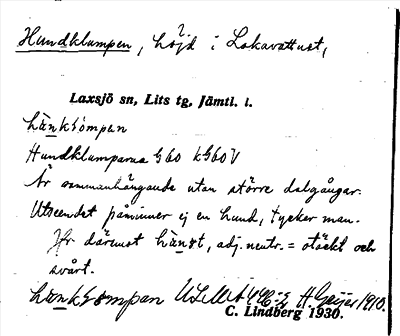 Hundklumpen, höjd i Lakavattnet,
Laxsjö sn, Lits tg, Jämtl. l.
hänksömpen
Hundklumparna G60 kG60V
Är sammanhängande utan större dalgångar.
Utseendet påminner ej en hund, tycker man.
Jfr däremot hänst, adj. neutr. = otäckt och
svårt.
hänksömpen H. Geijer 1910.
C. Lindberg 1930.